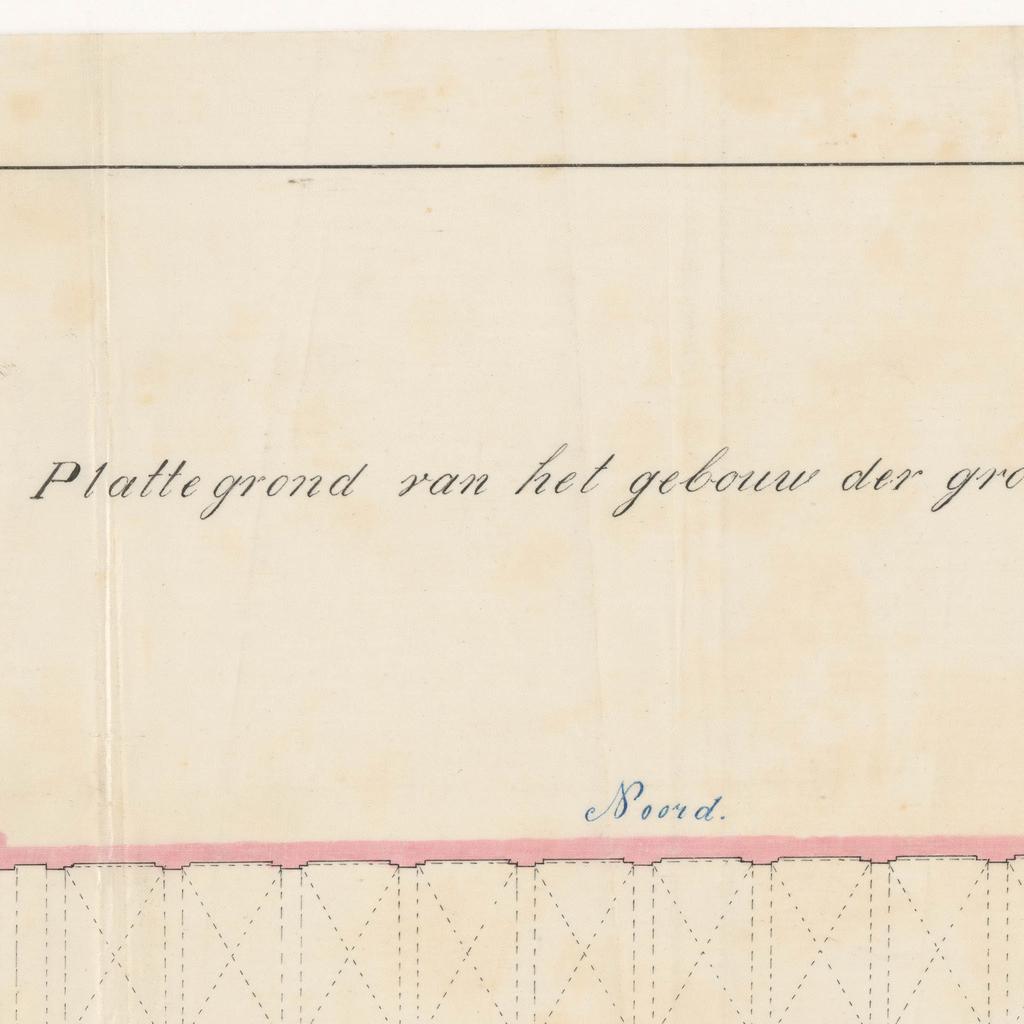 Plattegrond van het gebouw der gro
Noord.